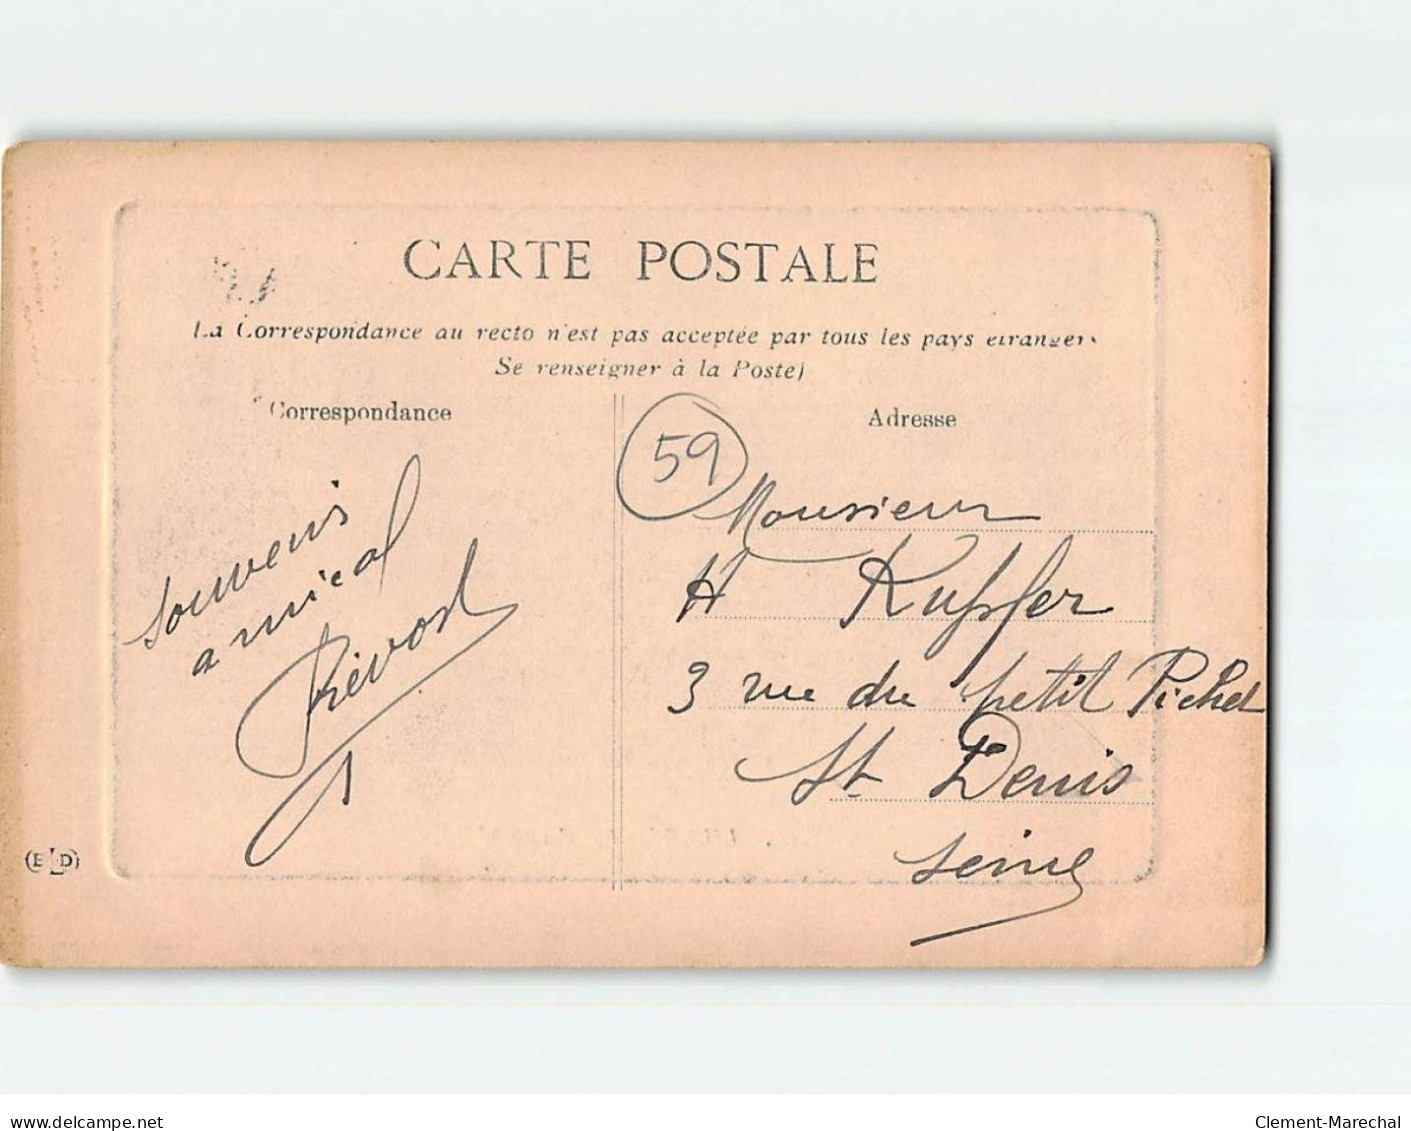 CARTE POSTALE
La Correspondance au recto n'est pas acceptée par tous les pays etrangers
Se renseigner à la Poste)
Correspondance
Adresse
59
Souvenis
amical
Prévost
Monsieur
H Kupfer
3 rue du petit Pichet
St Denis
Seine
ELD
www.delcampe.net
Clement-Marechal